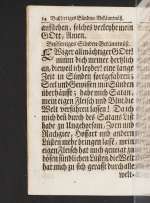 14 Bußfertiges Sünden-Bekäntnüß.
ausstehen, solches verleyhe mein
GOtt, Amen.
Bußfertiger Sünden-Bekäntnüß.
EWiger allmächtiger GOtt!
nimm dich meiner hertzlich
an, dieweil ich leyder! eine lange
Zeit in Sünden fortgefahren;
Seel und Gewissen mit Sünden
überhäufft; habe mich Satan,
mein eigen Fleisch und Blut, die
Welt verführen lassen! Da ich
mich denn durch des Satans List
habe zu Ungehorsam, Zorn und
Rachgier, Hoffart und andern
Lüsten mehr bringen lassen, mein
eigen Fleisch hat mich gereitzt zu
bösen sündlichen Lüsten, die Welt
hat mich zu sich gerafft durch alle
welt-